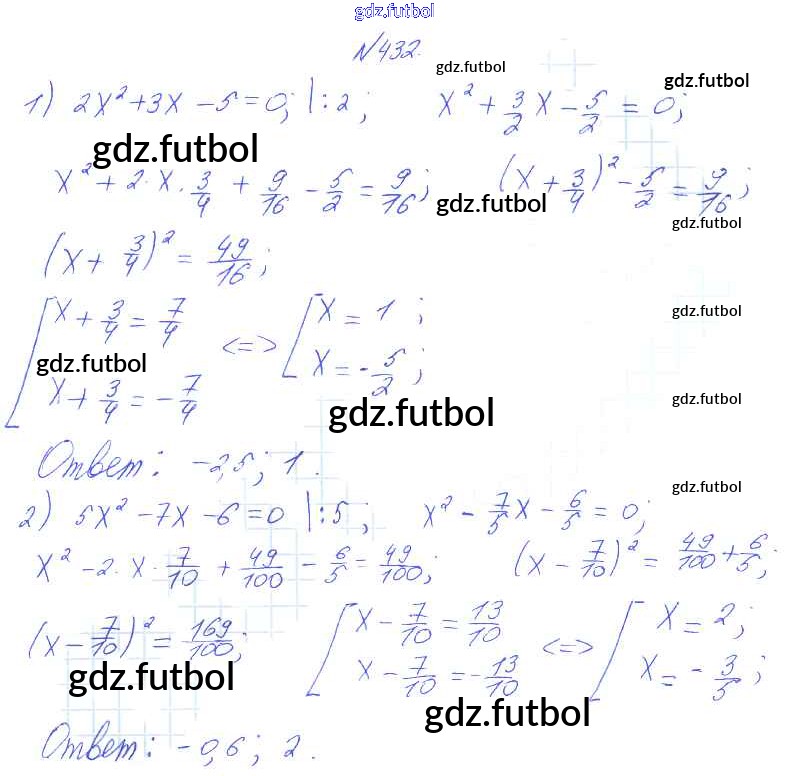 gdz.futbol
№432.
gdz.futbol
gdz.futbol
1) 2x² + 3x − 5 = 0; |:2; x² + 3/2 x − 5/2 = 0;
gdz.futbol
x² + 2·x·3/4 + 9/16 − 5/2 = 9/16; (x + 3/4)² − 5/2 = 9/16;
gdz.futbol
gdz.futbol
(x + 3/4)² = 49/16;
gdz.futbol
[x + 3/4 = 7/4 <=> [x = 1;
gdz.futbol
x + 3/4 = −7/4 x = −5/2;
gdz.futbol
gdz.futbol
Ответ: −2,5; 1.
gdz.futbol
2) 5x² − 7x − 6 = 0 |:5; x² − 7/5 x − 6/5 = 0;
x² − 2·x·7/10 + 49/100 − 6/5 = 49/100; (x − 7/10)² = 49/100 + 6/5;
(x − 7/10)² = 169/100; [x − 7/10 = 13/10 <=> [x = 2;
x − 7/10 = −13/10 x = −3/5;
gdz.futbol
gdz.futbol
Ответ: −0,6; 2.